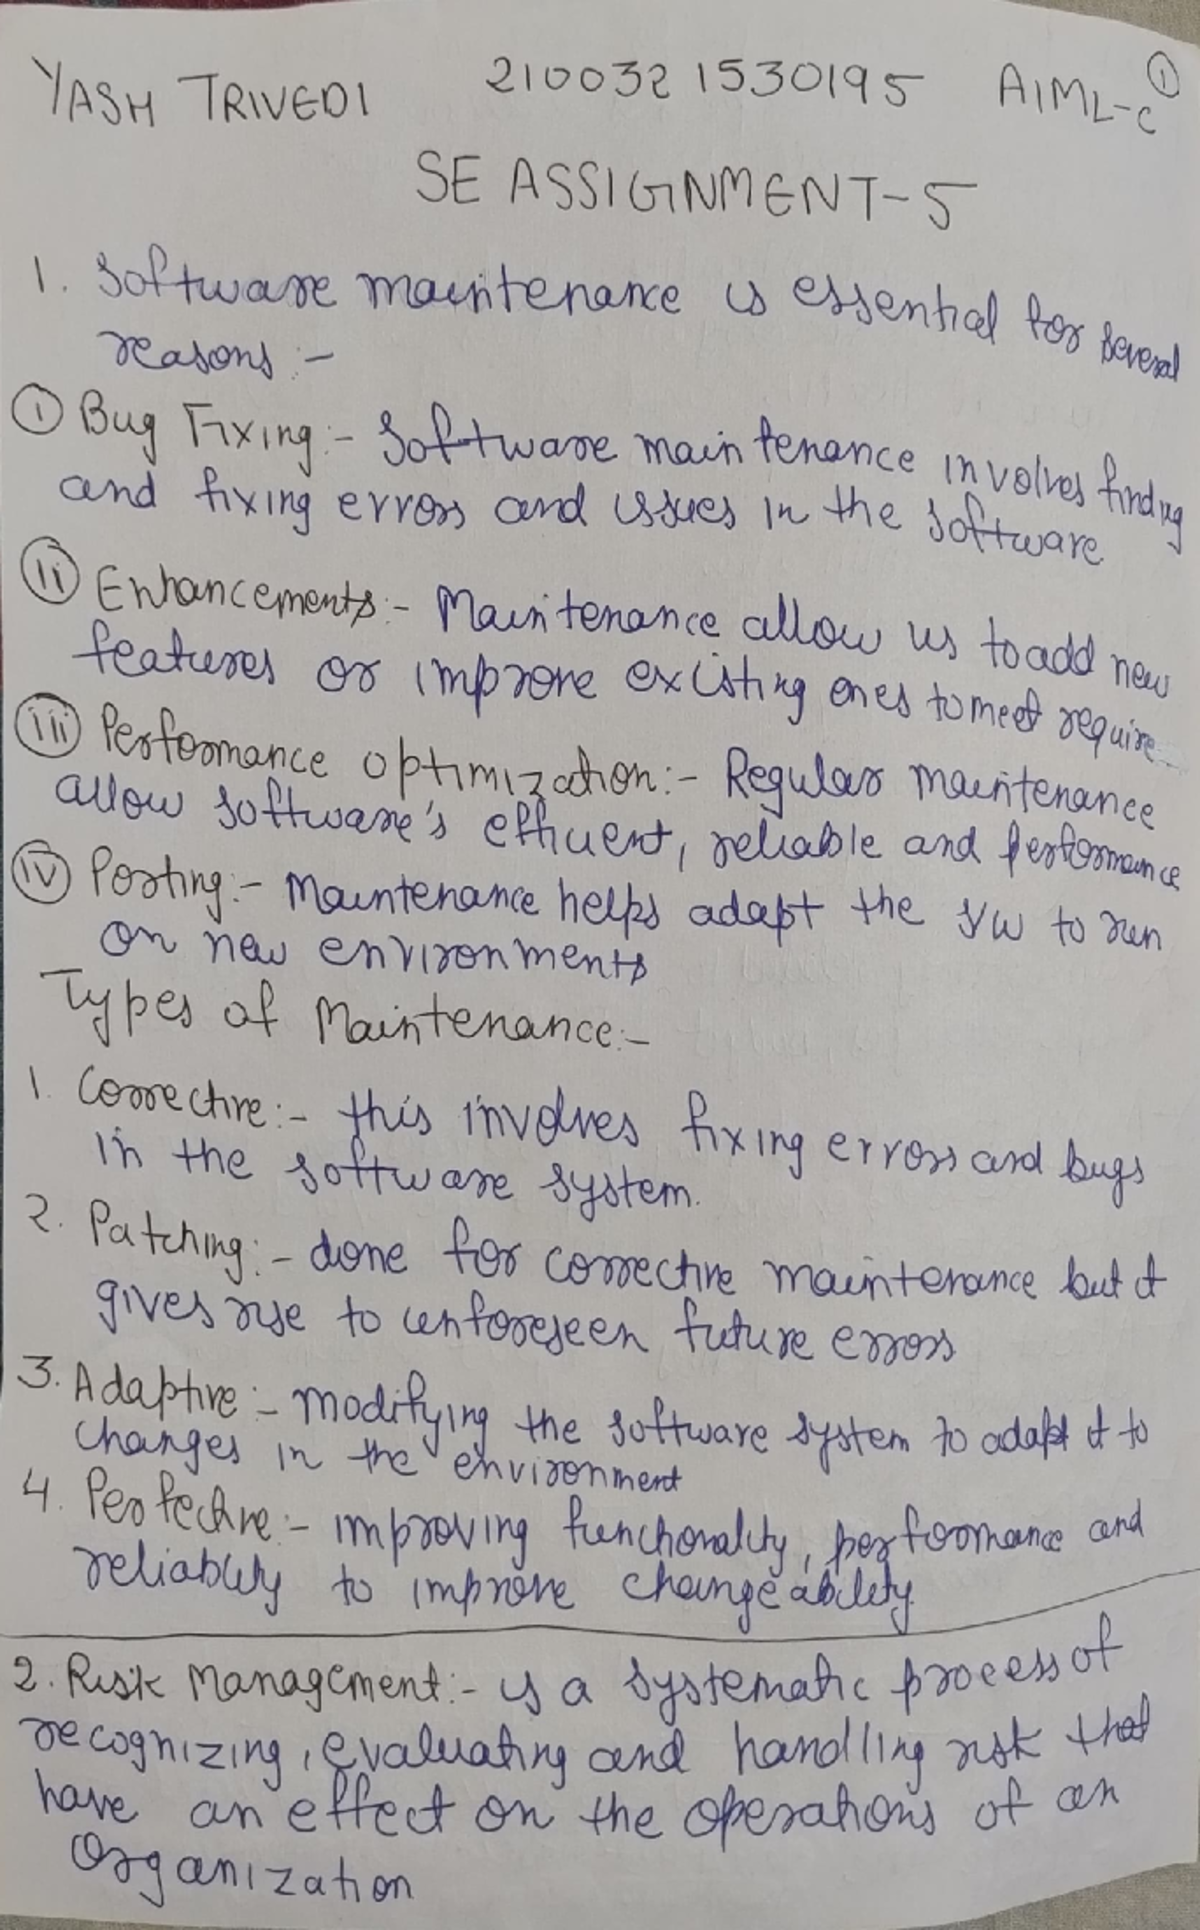 YASH TRIVEDI 2100321530195 AIML-C ①
SE ASSIGNMENT-5
1. Software maintenance is essential for several
reasons :-
ⓘ Bug Fixing :- Software maintenance involves finding
and fixing errors and issues in the software
ⓘⓘ Enhancements :- Maintenance allow us to add new
features or improve existing ones to meet require
ⓘⓘⓘ Performance optimization :- Regular maintenance
allow software's efficient, reliable and performance
ⓘⓥ Porting :- Maintenance helps adapt the s/w to run
on new environments
Types of Maintenance :-
1. Corrective :- this involves fixing errors and bugs
in the software system.
2. Patching :- done for corrective maintenance but it
gives rise to unforeseen future errors
3. Adaptive :- modifying the software system to adapt it to
changes in the environment
4. Perfective :- improving functionality, performance and
reliability to improve changeability.
2. Risk Management :- is a systematic process of
recognizing, evaluating and handling risk that
have an effect on the operations of an
organization